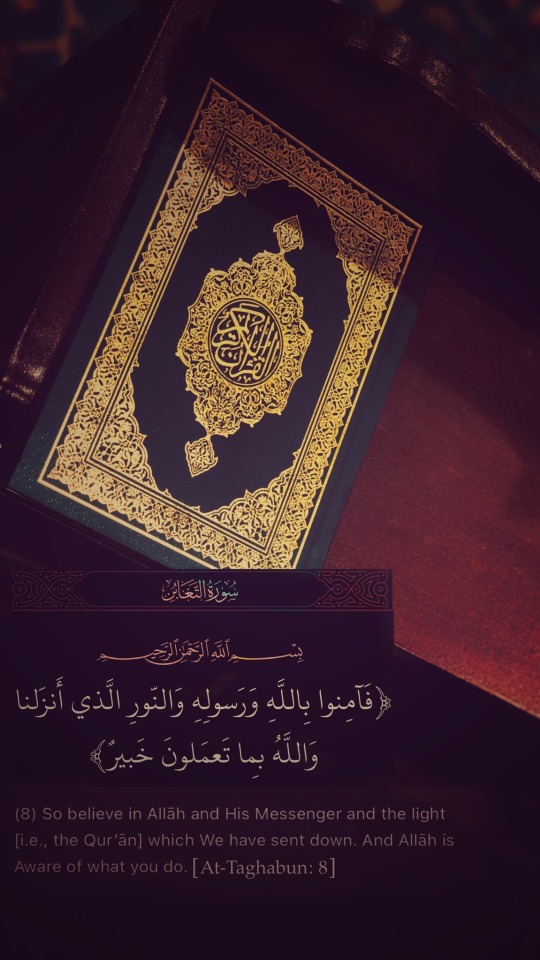 القرآن الكريم
سُورَةُ التَّغَابُنِ
بِسْمِ ٱللَّهِ ٱلرَّحْمَٰنِ ٱلرَّحِيمِ
﴿فَآمِنوا بِاللَّهِ وَرَسولِهِ وَالنّورِ الَّذي أَنزَلنا
وَاللَّهُ بِما تَعمَلونَ خَبيرٌ﴾
(8) So believe in Allāh and His Messenger and the light
[i.e., the Qur’ān] which We have sent down. And Allāh is
Aware of what you do. [At-Taghabun: 8]